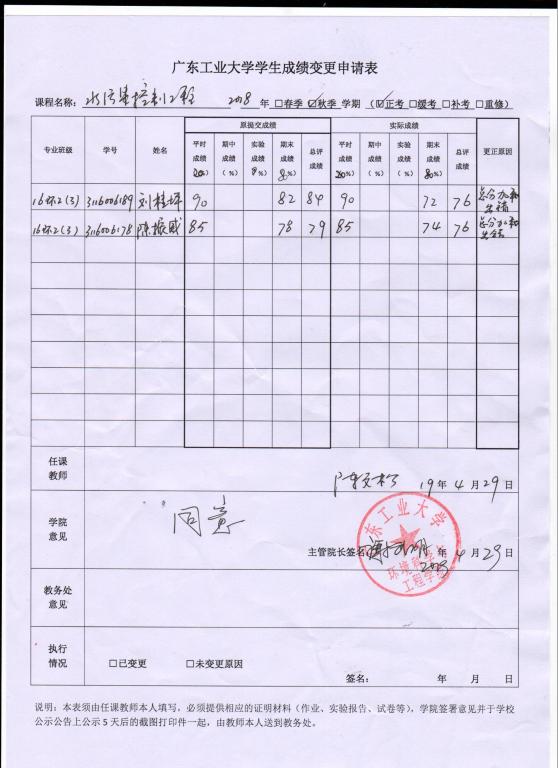 广东工业大学学生成绩变更申请表
课程名称：水污染控制工程 2018 年 □春季 ☑秋季 学期 （☑正考 □缓考 □补考 □重修）
专业班级 学号 姓名 原提交成绩 实际成绩 更正原因
平时成绩（20%） 期中成绩（%） 实验成绩（%） 期末成绩（80%） 总评成绩 平时成绩（20%） 期中成绩（%） 实验成绩（%） 期末成绩（80%） 总评成绩
16环2(3) 3116006189 刘桂坪 90 82 84 90 72 76 总分加和出错
16环2(3) 3116006178 陈振威 85 78 79 85 74 76 总分加和出错
任课教师
19年 4月 29日
学院意见
同意
主管院长签名
年 4月 29日
东工业大学
环境科学与
工程学院
教务处意见
执行情况
□已变更 □未变更原因
签名： 年 月 日
说明：本表须由任课教师本人填写，必须提供相应的证明材料（作业、实验报告、试卷等），学院签署意见并于学校
公示公告上公示 5 天后的截图打印件一起，由教师本人送到教务处。